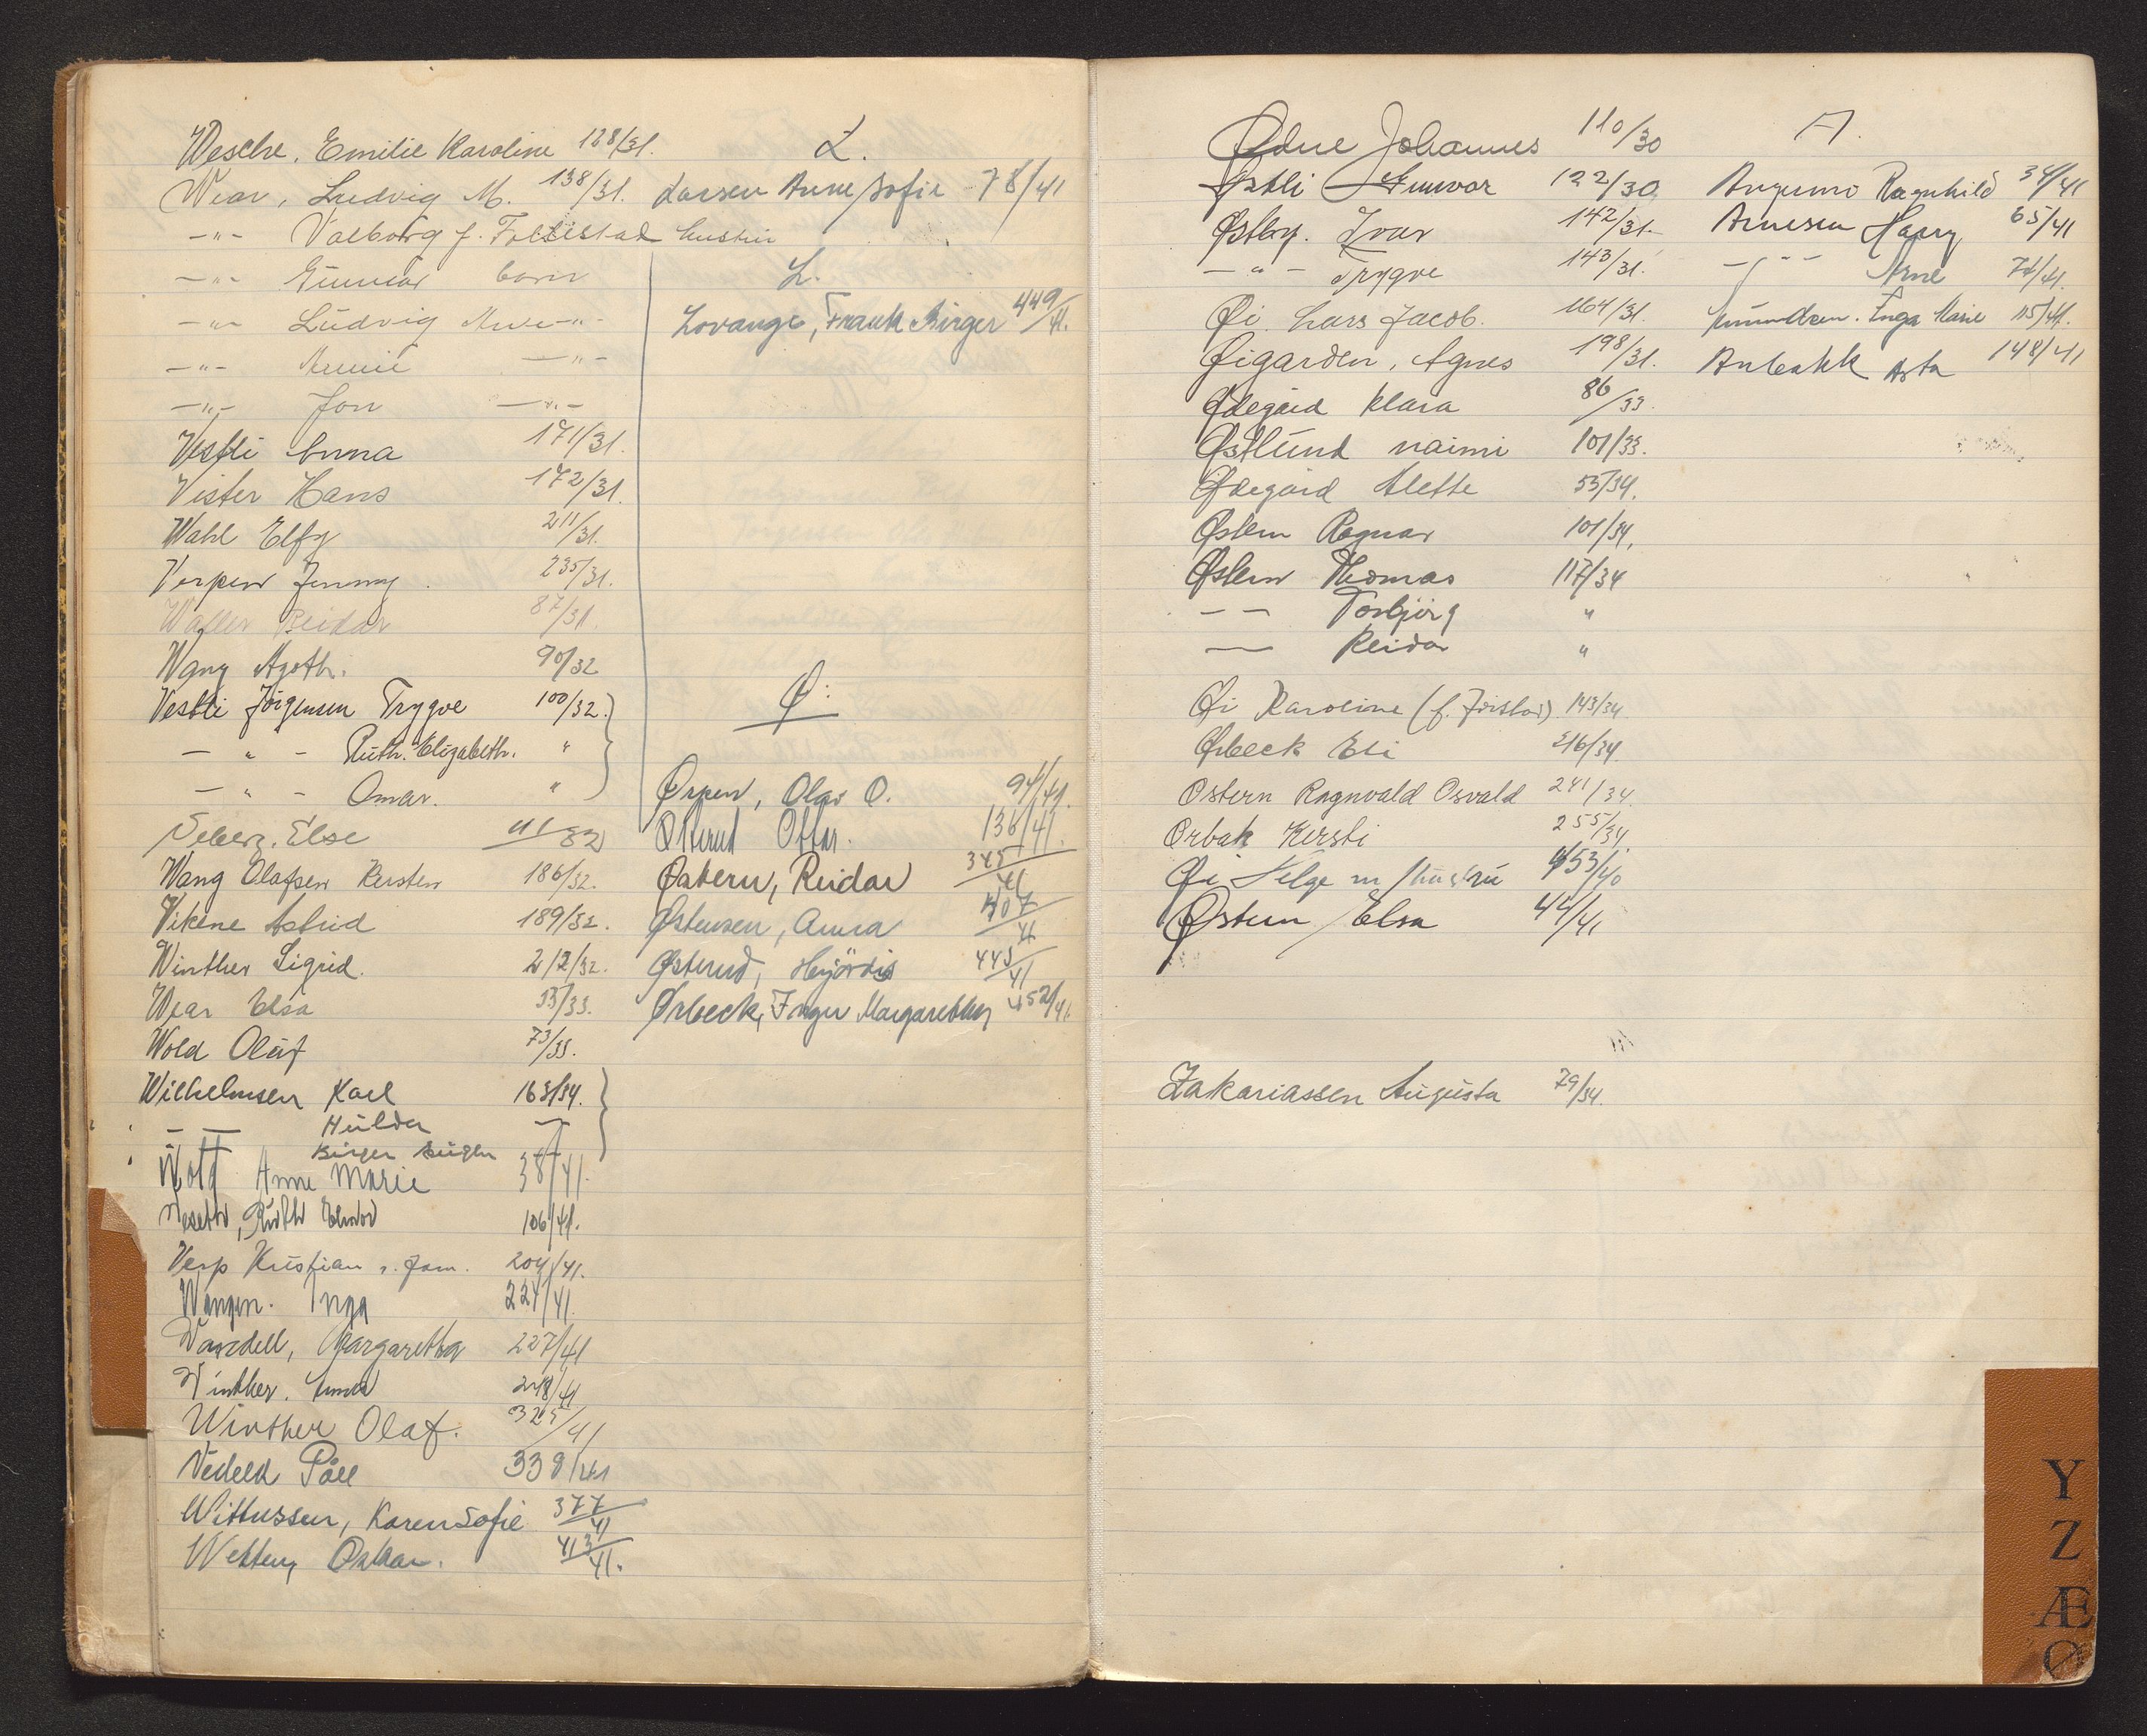 Wesche, Emilie Karoline 128/31.
Wear, Ludvig M. 138/31.
-"- Valborg f. Follestad hustru
-"- Gunnar barn
-"- Ludvig -"-
-"- Annie -"-
-"- Jon -"-
Vestli Anna 171/31.
Vister Hans 172/31.
Wahl Elfy 211/31.
Verpen Jenny 235/31.
Waller Reidar 87/31.
Wang Agoth. 90/32
Vestli Jörgensen Trygve 100/32.
- " - Ruth. Elizabeth. "
- " - Omar. "
Else
Wang Olafsen Kirsten 186/32.
Vikene Astrid 189/32.
Winther Sigrid. 212/32.
Wear Elsa 33/33.
Wold Olaf 73/33.
Wilhelmsen Karl 163/34.
— — Hulda
Birger
Wold Anne Marie 38/41.
Ruth 106/41.
Verp Kristian m. fam. 204/41.
Wangen. Inga 224/41.
Margaretha 227/41
Winther. Anna 248/41
Winther Olaf. 325/41
Vedeld Pål 339/41
Wittussen, Karen Sofie 377/41
Oskar. 413/41.
L.
Larsen Anne Sofie 78/41
L.
Lovange, Frank Birger 449/41.
Ø.
Ørpen, Olav O. 94/41.
Østerud Ottar. 136/41.
Østern, Reidar 345/41
Østensen, Anna 407/41
Østerud, Hjördis 443/41
Ørbeck, Inger Margarethe 452/41
Ødne Johannes 110/30
Østli Gunvor 122/30
Østby. Ivar 142/31.
- " - Trygve 143/31.
Øi Lars Jacob. 164/31.
Øigarden, Agnes 198/31.
Ødegård Klara 86/33.
Østlund naimi 101/33.
Ødegård Alette 53/34.
Østern Ragnar 101/34.
Østern Thomas 117/34
— — Torbjörg "
— Reidar "
Øi Karoline (f. ) 143/34
Ørbeck Eli 216/34.
Østern Ragnvald Osvald 241/34.
Ørbak Kirsti 255/34.
Øi Helge m/hustru 453/40
Østern Elsa 44/41
Zakariassen Augusta 79/34.
A.
Ragnhild 34/41
Arnesen Harry 65/41
- " - Arne 74/41.
Amundsen. Inga Marie 115/41.
Asta 148/41
Y
Z
Æ
Ø